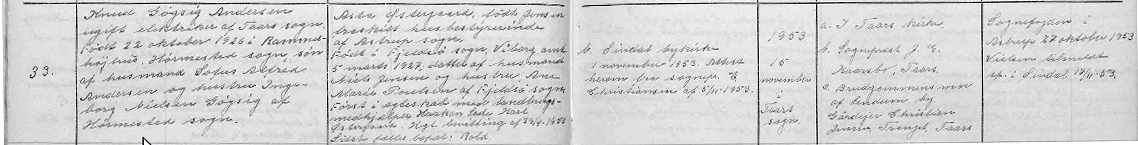 33.
Knud Gögsig Andersen
ugift elektriker af Taars sogn,
Født 22 oktober 1926 i Rammel-
høj hus, Hörmested sogn, søn
af husmand Sofus Alfred
Andersen og hustru Inge-
borg Nielsen Gögsig af
Hörmested sogn.
Asta Østergaard, født Jensen
fraskilt husbestyrerinde
af Astrup sogn,
Født i Fjeldsö sogn, Viborg amt
5 marts 1927, datter af husmand
Niels Jensen og hustru Ane
Marie Poulsen af Fjeldsö sogn
Først i ægteskab med landbrugs-
medhjælper Haakon
Østergaard. Kgl. bevilling af 1953
b. Sindal bykirke
1 november 1953. Attest
herom fra sognepr. E
Christiansen af 5/11-1953.
1953
15
november
i
Taars
sogn.
a. I Taars kirke.
b. Sognepræst J. E.
Kaarsbo, Taars.
c. Brudgommens mor
af Lendum by
Gårdejer Christian
Jensen, Taars
Sognefogden i
Astrup 27 oktober 1953
Vielsen tilmeldt
sp. i Sindal 17/11-53.